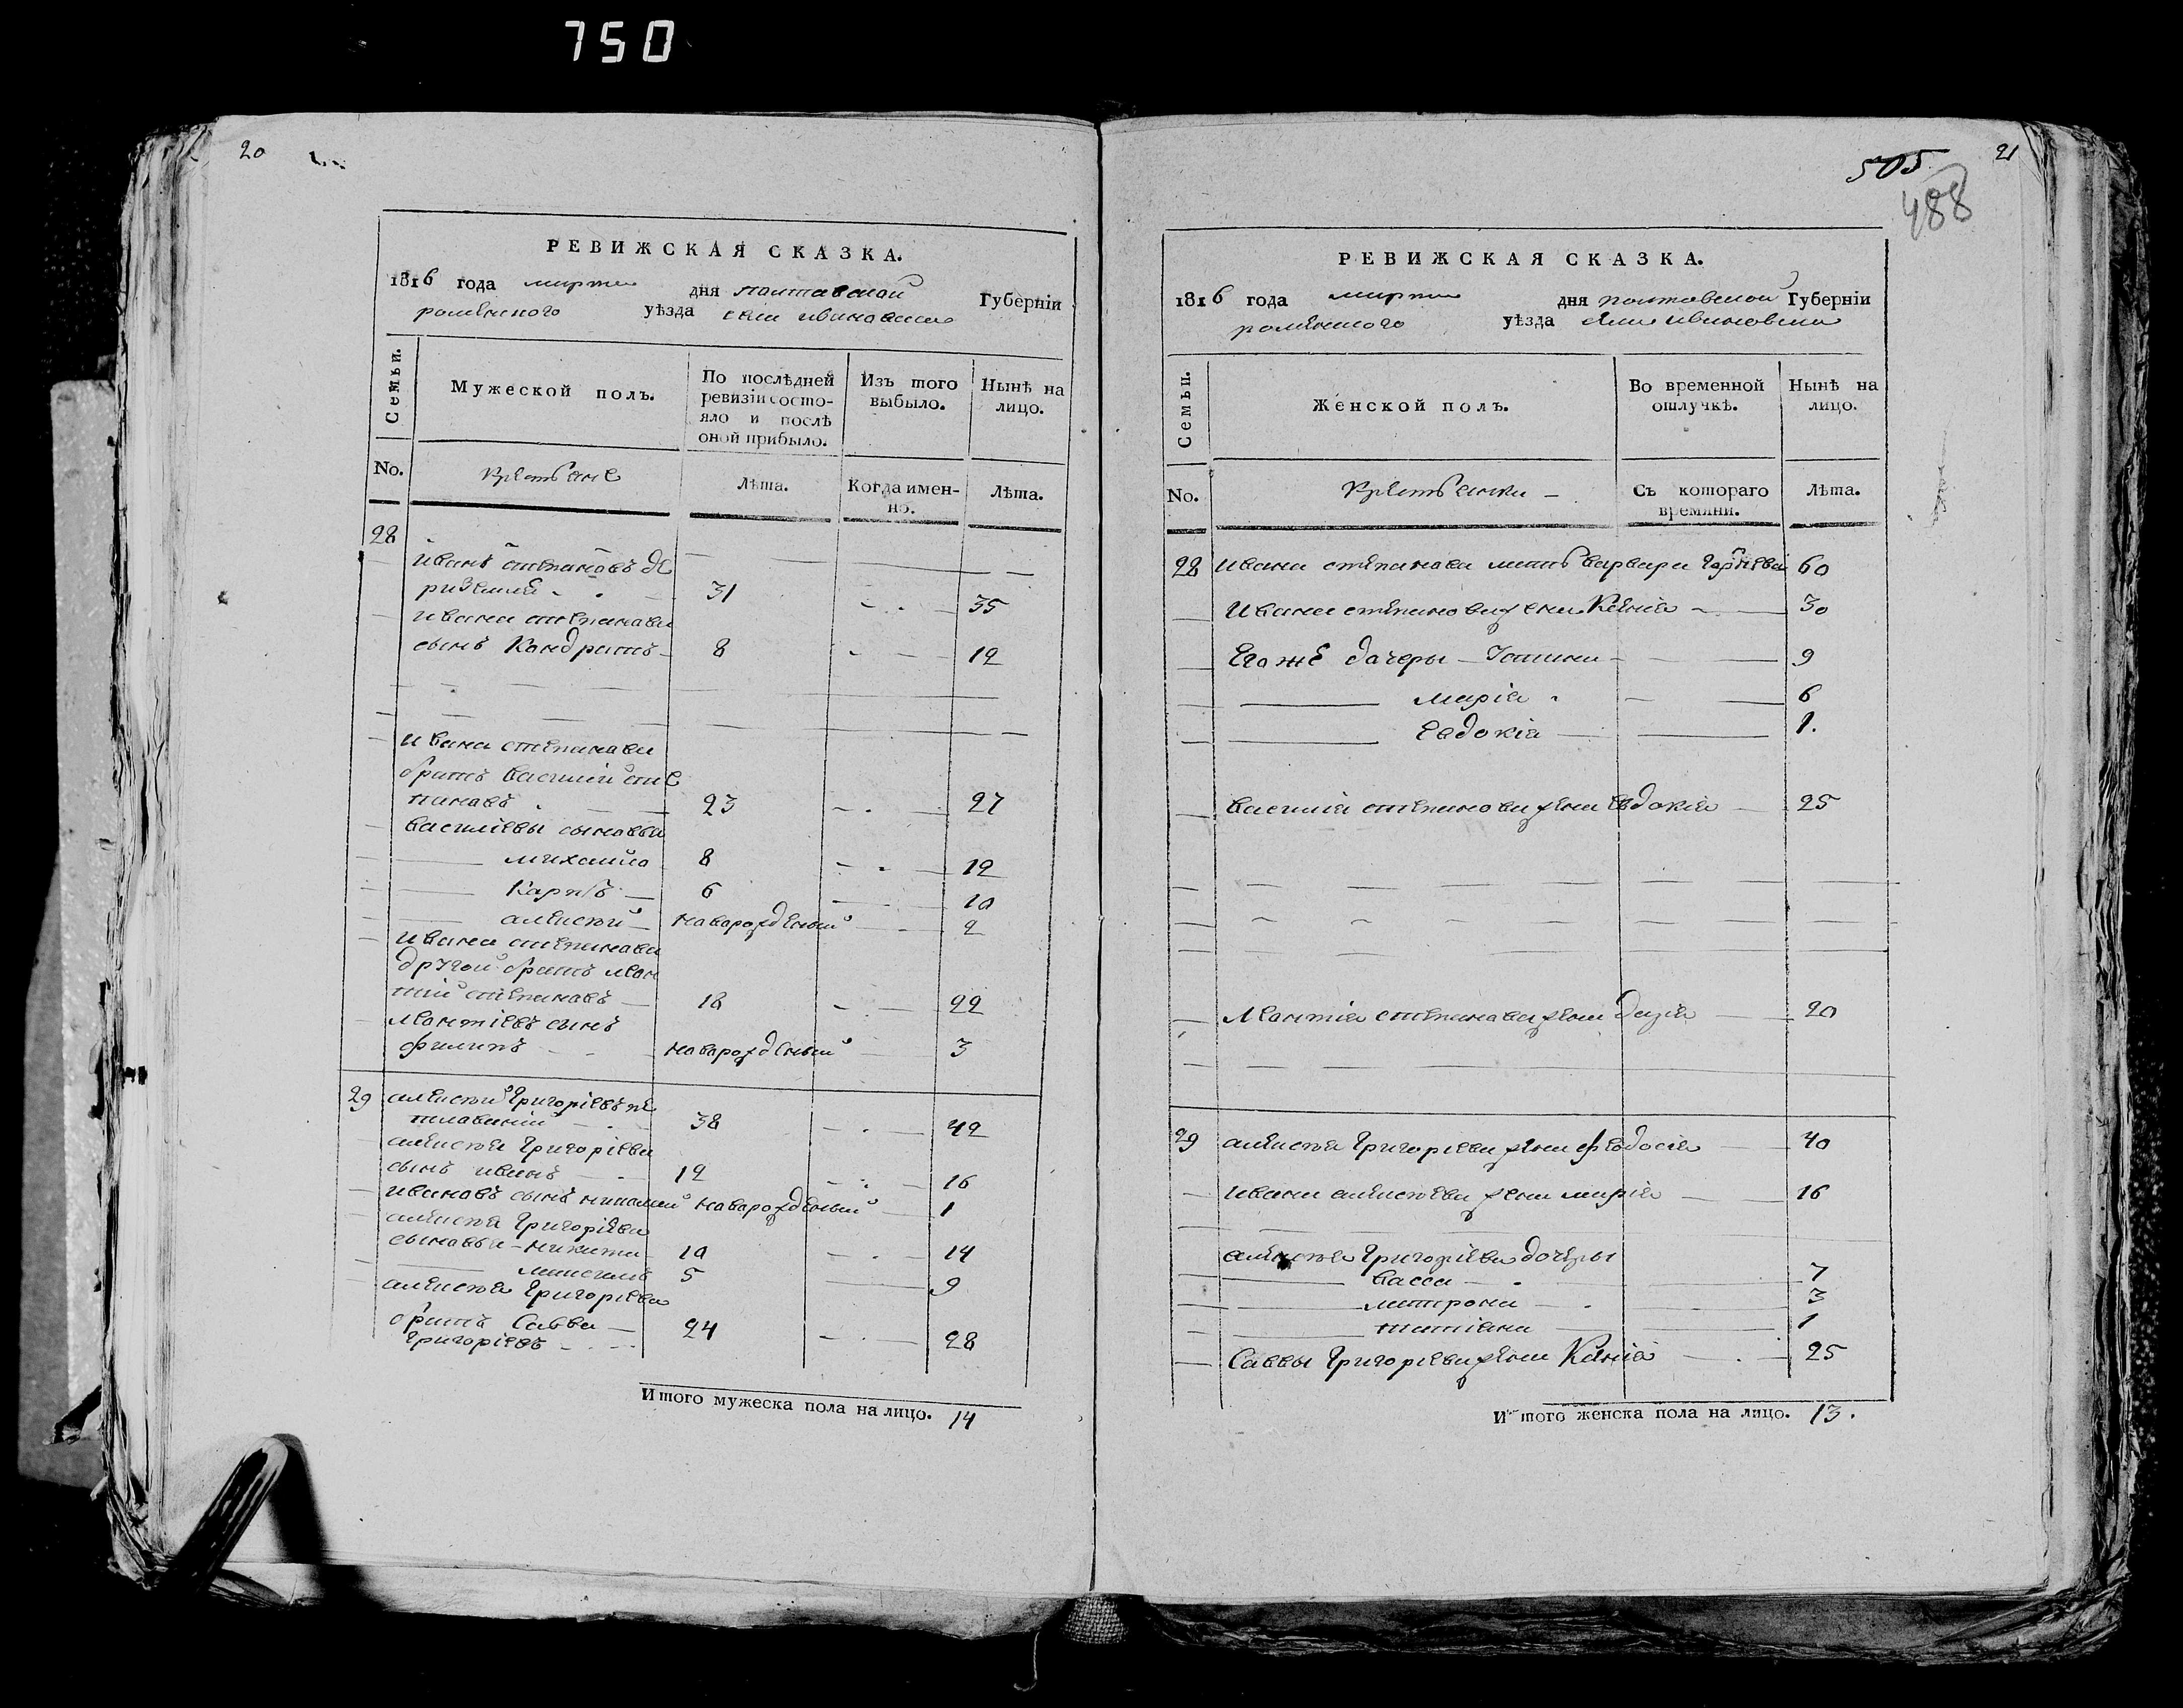 750
20
РЕВИЖСКАЯ СКАЗКА.
1816 года марта дня полтавской Губерніи
роменского уѣзда села ивановки
Семьи.
Мужеской полъ.
По послѣдней ревизіи состояло и послѣ оной прибыло.
Изъ того выбыло.
Нынѣ на лицо.
No.
Крестьяне
Лѣта.
Когда именно.
Лѣта.
28
иванъ степановъ де
31 35
ивана степанова
сынъ Кондратъ 8 12
ивана степанова
братъ василий сте
пановъ 23 27
василіевы сыновья
михайло 8 12
Карпъ 6 10
алексѣй новорожденый 2
ивана степанова
другой братъ леон
тий степановъ 18 22
леонтіевъ сынъ
филипъ новорожденый 3
29 алексѣй григоріевъ
38 42
алексѣя григоріева
сынъ иванъ 12 16
ивановъ сынъ николай новорожденый 1
алексѣя григоріева
сыновья никита 10 14
максимъ 5 9
алексѣя григоріева
братъ Савва 24 28
григоріевъ
Итого мужеска пола на лицо. 14
21
505
488
РЕВИЖСКАЯ СКАЗКА.
1816 года марта дня полтавской Губерніи
роменского уѣзда села ивановки
Семьи.
Женской полъ.
Во временной отлучкѣ.
Нынѣ на лицо.
No.
Крестьянки
Съ котораго времяни.
Лѣта.
28 ивана степанова мать варвара 60
ивана степанова жена Ксения 30
Его же дочеры Устина 9
марія 6
Евдокіа 1.
василия степанова жена Евдокиа 25
леонтиа степанова жена 20
29 алексѣя григоріева жена феодосіа 40
ивана алексѣева жена марія 16
алексѣя григоріева дочеры
васса 7
матрона 3
татіана 1
Саввы григоріева жена Ксеніа 25
Итого женска пола на лицо. 13.